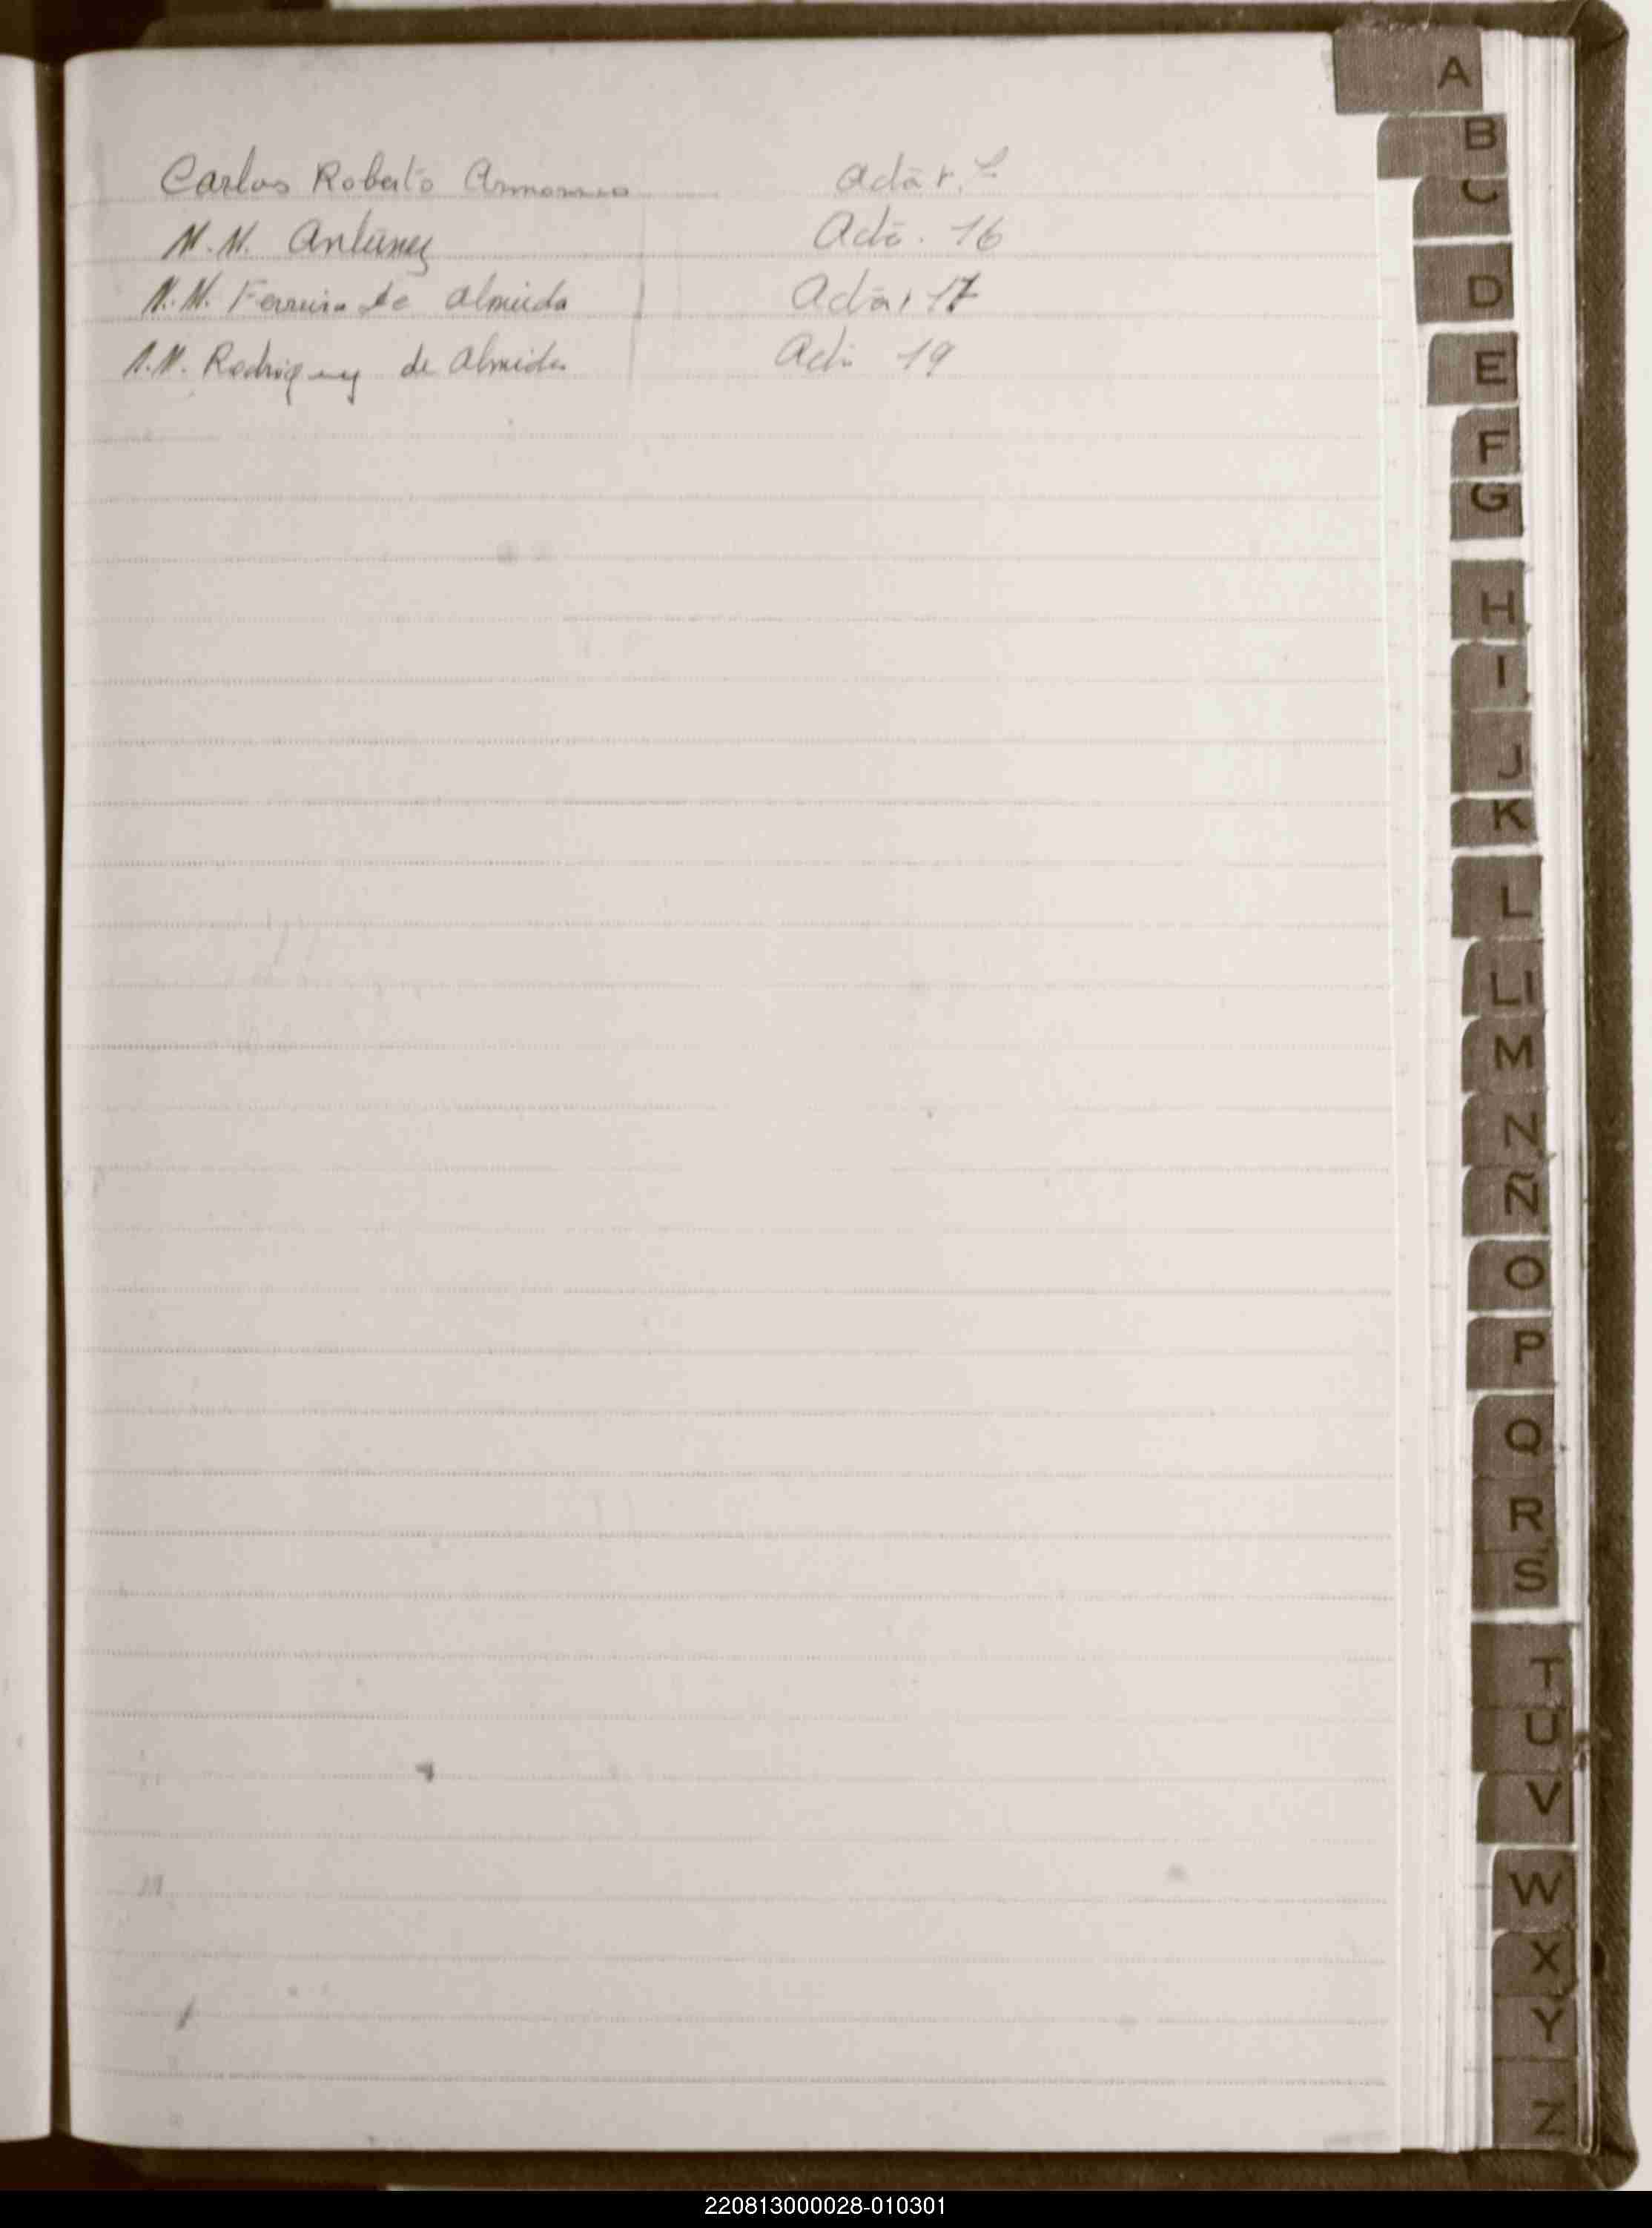 Carlos Roberto
N.N. Antunez Acta. 16
N.N. Ferreira de Almeida Acta 17
N.N. Rodriguez de Almeida Acta 19
A
B
C
D
E
F
G
H
I
J
K
L
Ll
M
N
Ñ
O
P
Q
R
S
T
U
V
W
X
Y
Z
220813000028-010301